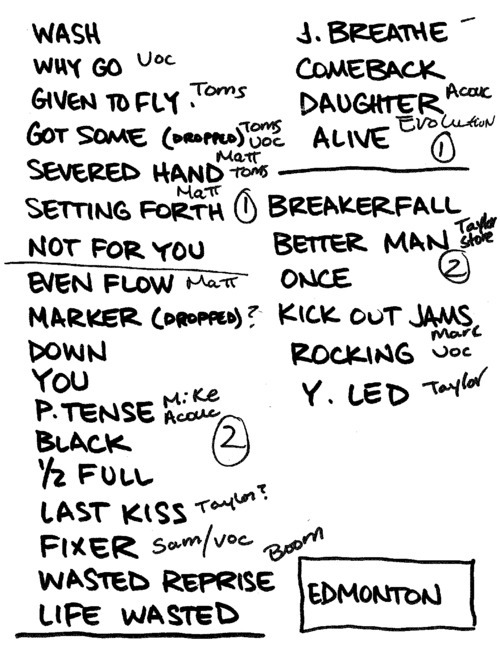 WASH
WHY GO Voc
GIVEN TO FLY. Toms
GOT SOME (DROPPED) Toms Voc
SEVERED HAND Matt Toms
SETTING FORTH Matt 1
NOT FOR YOU
EVEN FLOW Matt
MARKER (DROPPED)?
DOWN
YOU
P. TENSE Mike Acouc
BLACK 2
1/2 FULL
LAST KISS Taylor?
FIXER Sam/voc
WASTED REPRISE Boom
LIFE WASTED
J. BREATHE –
COMEBACK
DAUGHTER Acouc
ALIVE Evolution 1
BREAKERFALL
BETTER MAN Taylor store 2
ONCE
KICK OUT JAMS
ROCKING Marc Voc
Y. LED Taylor
EDMONTON